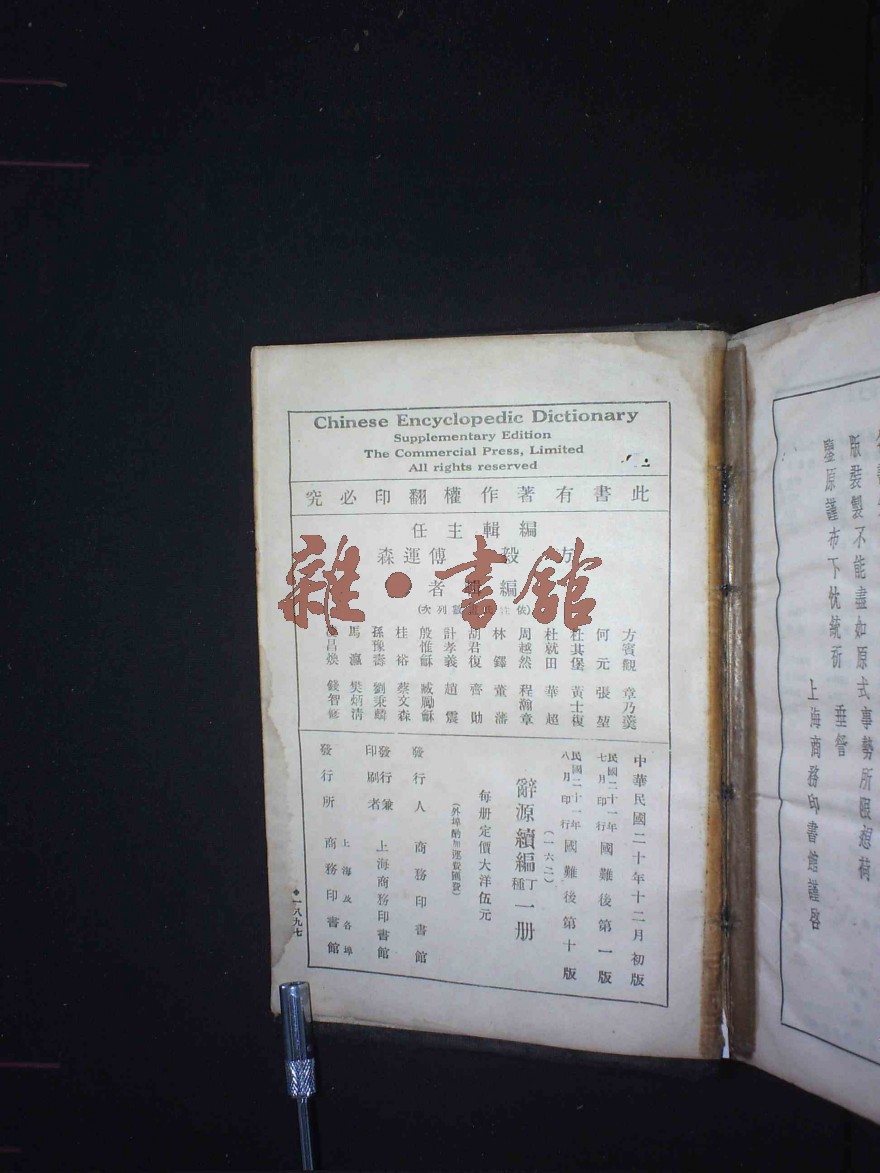 Chinese Encyclopedic Dictionary
Supplementary Edition
The Commercial Press, Limited
All rights reserved
此書有著作權翻印必究
編輯主任
方毅 傅運森
編輯者
方賓觀 章乃羹
何元 張堃
杜其堡 黃士復
杜就田 華超
周越然 程瀚章
林鐸 董藩
胡君復 齊勛
計孝義 趙震
殷惟龢 臧勵龢
桂裕 蔡文森
孫豫壽 劉秉麟
馬瀛 樊炳清
昌煥 錢智修
中華民國二十年十二月初版
民國二十一年七月印行國難後第一版
民國二十一年八月印行國難後第十版
(一六二)
辭源續編丁種一册
每册定價大洋伍元
(外埠酌加運費匯費)
發行人 商務印書館
發行兼印刷者 上海商務印書館
發行所 上海及各埠商務印書館
一八九七
版裝製不能盡如原式事勢所限想荷
鑒原謹布下忱統祈 垂詧
上海商務印書館謹啓
雜·書館